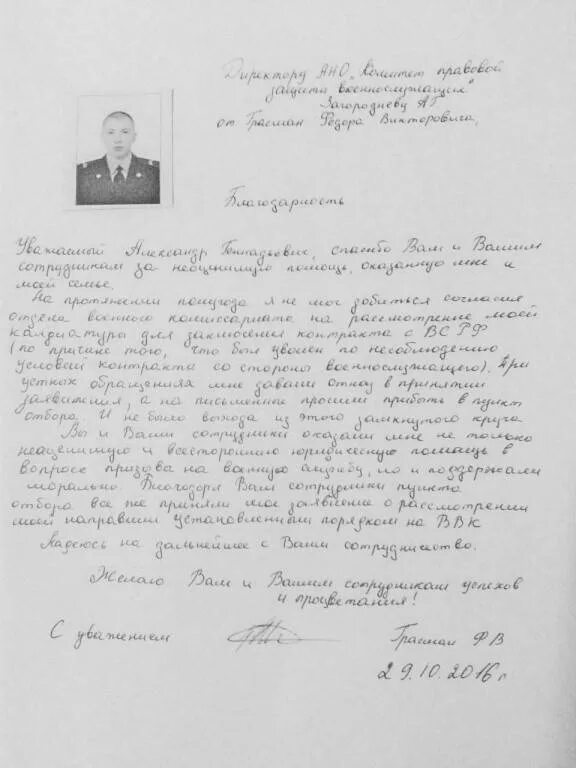 Директору АНО "Комитет правовой
защиты военнослужащих"
Загородневу АГ
от Грасман Федора Викторовича,
Благодарность
Уважаемый Александр Геннадьевич, спасибо Вам и Вашим
сотрудникам за неоценимую помощь, оказанную мне и
моей семье.
На протяжении полугода я не мог добиться согласия
отдела военного комиссариата на рассмотрение моей
кандидатуры для заключения контракта с ВС РФ
(по причине того, что был уволен по несоблюдению
условий контракта со стороны военнослужащего). При
устных обращениях мне давали отказ в принятии
заявления, а на письменные просили прибыть в пункт
отбора. И не было выхода из этого замкнутого круга
Вы и Ваши сотрудники оказали мне не только
неоценимую и всестороннюю юридическую помощь в
вопросе призыва на военную службу, но и поддержали
морально. Благодоря Вам сотрудники пункта
отбора все же приняли мое заявление о рассмотрении
моей направили установленным порядком на ВВК
Надеюсь на дальнейшее с Вами сотрудничество.
Желаю Вам и Вашим сотрудникам успехов
и процветания!
С уважением Грасман ФВ
29.10.2016 г